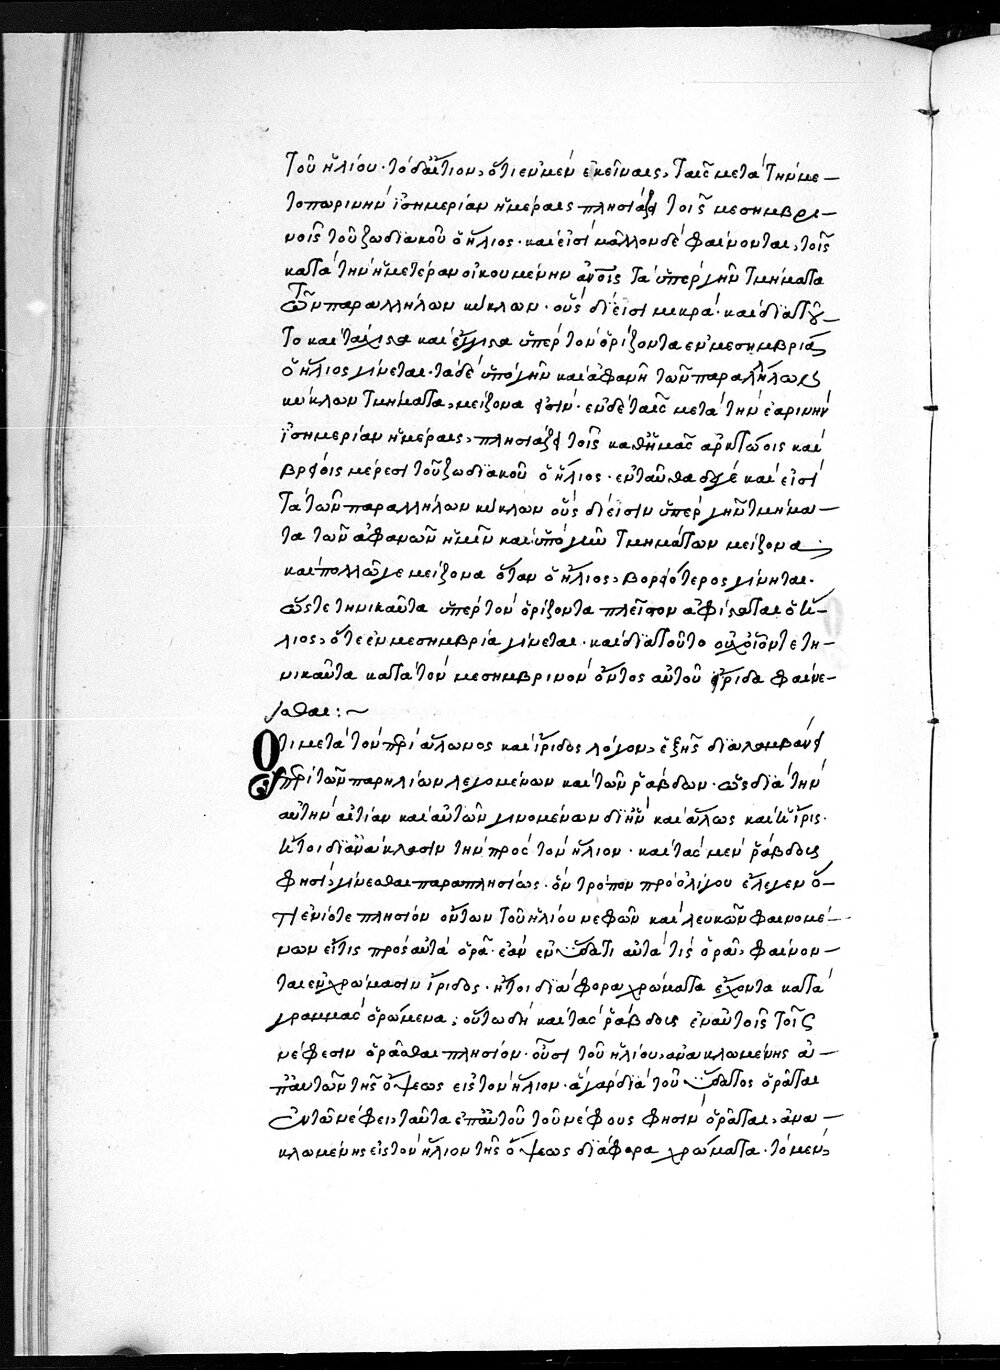 τοῦ ἡλίου· τὸ δ' αἴτιον, ὅτι ἐν μὲν ἐκείναις, ταῖς μετὰ τὴν με–
τοπωρινὴν ἰσημερίαν ἡμέραις πλησιάζει τοῖς μεσημβρι–
νοῖς τοῦ ζωδιακοῦ ὁ ἥλιος· καὶ εἰσὶ μᾶλλον δὲ φαίνονται, τοῖς
κατὰ τὴν ἡμετέραν οἰκουμένην αὐτοῖς τὰ ὑπὲρ γῆν τμήματα
τῶν παραλλήλων κύκλων· οὓς δίεισι μικρά· καὶ διὰ τοῦ–
το καὶ τάχιστα καὶ ἔγγιστα ὑπὲρ τὸν ὁρίζοντα ἐν μεσημβρίας
ὁ ἥλιος γίνεται· τὰ δὲ ὑπὸ γῆν καὶ ἀφανῆ τῶν παραλλήλων
κύκλων τμήματα, μείζονα εἰσίν· ἐν δὲ ταῖς μετὰ τὴν ἐαρινὴν
ἰσημερίαν ἡμέραις, πλησιάζει τοῖς καθ' ἡμᾶς ἀρκτώοις καὶ
βορείοις μέρεσι τοῦ ζωδιακοῦ ὁ ἥλιος· ἐνταῦθα δέ γε καὶ εἰσὶ
τὰ τῶν παραλλήλων κύκλων οὓς δίεισιν ὑπὲρ γῆν τμήμα–
τα τῶν ἀφανῶν ἡμῖν καὶ ὑπὸ γῆν τμημάτων μείζονα·
καὶ πολλῷ γε μείζονα ὅταν ὁ ἥλιος, βορειότερος γίνηται·
ὥστε τηνικαῦτα ὑπὲρ τὸν ὁρίζοντα πλεῖστον ἀφίσταται ὁ ἥ–
λιος, ὅτε ἐν μεσημβρία γίνεται· καὶ διὰ τοῦτο οὐχ οἷόν τε τη–
νικαῦτα κατὰ τὸν μεσημβρινὸν ὄντος αὐτοῦ ἴριδα φαίνε–
σθαι:~
Ὅτι μετὰ τὸν περὶ ἅλωνος καὶ ἴριδος λόγον, ἑξῆς διαλαμβάνει
περὶ τῶν παρηλίων λεγομένων καὶ τῶν ῥάβδων· ὡς διὰ τὴν
αὐτὴν αἰτίαν καὶ αὐτῶν γινομένων δι' ἣν καὶ ἅλως καὶ ἡ ἶρις·
ἤτοι δι' ἀνάκλασιν τὴν πρὸς τὸν ἥλιον· καὶ τὰς μὲν ῥάβδους
φησὶ, γίνεσθαι παραπλησίως· ὃν τρόπον πρὸ ὀλίγου ἔλεγεν ὅ–
τι ἐνίοτε πλησίον ὄντων τοῦ ἡλίου νεφῶν καὶ λευκῶν φαινομέ–
νων εἴ τις πρὸς αὐτὰ ὁρᾷ· ἐὰν ἐν ὕδατι αὐτά τις ὁρᾷ, φαίνον–
ται ἐν χρώμασιν ἴριδος· ἤτοι διάφορα χρώματα ἔχοντα κατὰ
γραμμὰς ὁρώμενα; οὕτω δὴ καὶ τὰς ῥάβδους ἐν αὐτοῖς τοῖς
νέφεσιν ὁρᾶσθαι πλησίον· οὖσι τοῦ ἡλίου, ἀνακλωμένης ἀ–
π' αὐτῶν τῆς ὄψεως εἰς τὸν ἥλιον· ἃ γὰρ διὰ τοῦ ὕδατος ὁρᾶται
ἐν τῷ νέφει, ταῦτα ἐπ' αὐτοῦ τοῦ νέφους φησὶν ὁρᾶται, ἀνα–
κλωμένης εἰς τὸν ἥλιον τῆς ὄψεως διάφορα χρώματα· τὸ μὲν,